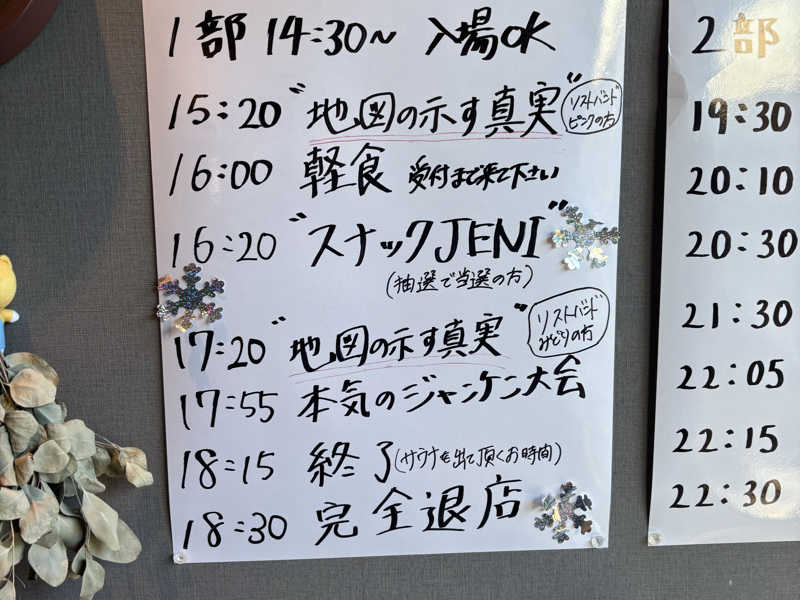 1部 14:30~ 入場OK
15:20 "地図の示す真実" リストバンド
ピンクの方
16:00 軽食 受付まで来て下さい
16:20 "スナックJENI"
(抽選で当選の方)
17:20 "地図の示す真実" リストバンド
みどりの方
17:55 本気のジャンケン大会
18:15 終了(サウナを出て頂くお時間)
18:30 完全退店
2部
19:30
20:10
20:30
21:30
22:05
22:15
22:30